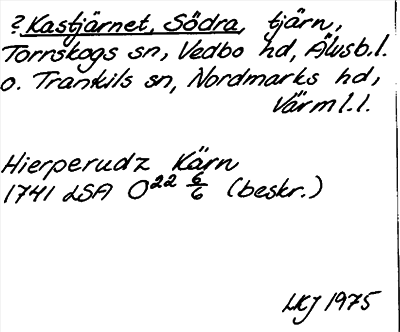 ? Kastjärnet, Södra, tjärn,
Torrskogs sn, Vedbo hd, Älvsb.l.
o. Trankils sn, Nordmarks hd,
Värml.l.
Hierperudz Kärn
1741 LSA O²² 6/6 (beskr.)
LKJ 1975